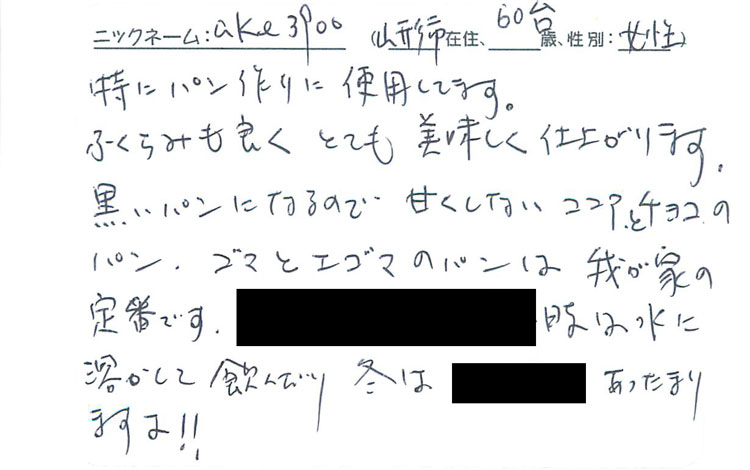 ニックネーム:ake3900 (山形市在住、60台歳、性別:女性)
特にパン作りに使用してます。
ふくらみも良くとても美味しく仕上がります。
黒いパンになるので甘くしないココアとチョコの
パン、ゴマとエゴマのパンは我が家の
定番です。 時は水に
溶かして飲んだり冬は あったまり
ますよ!!